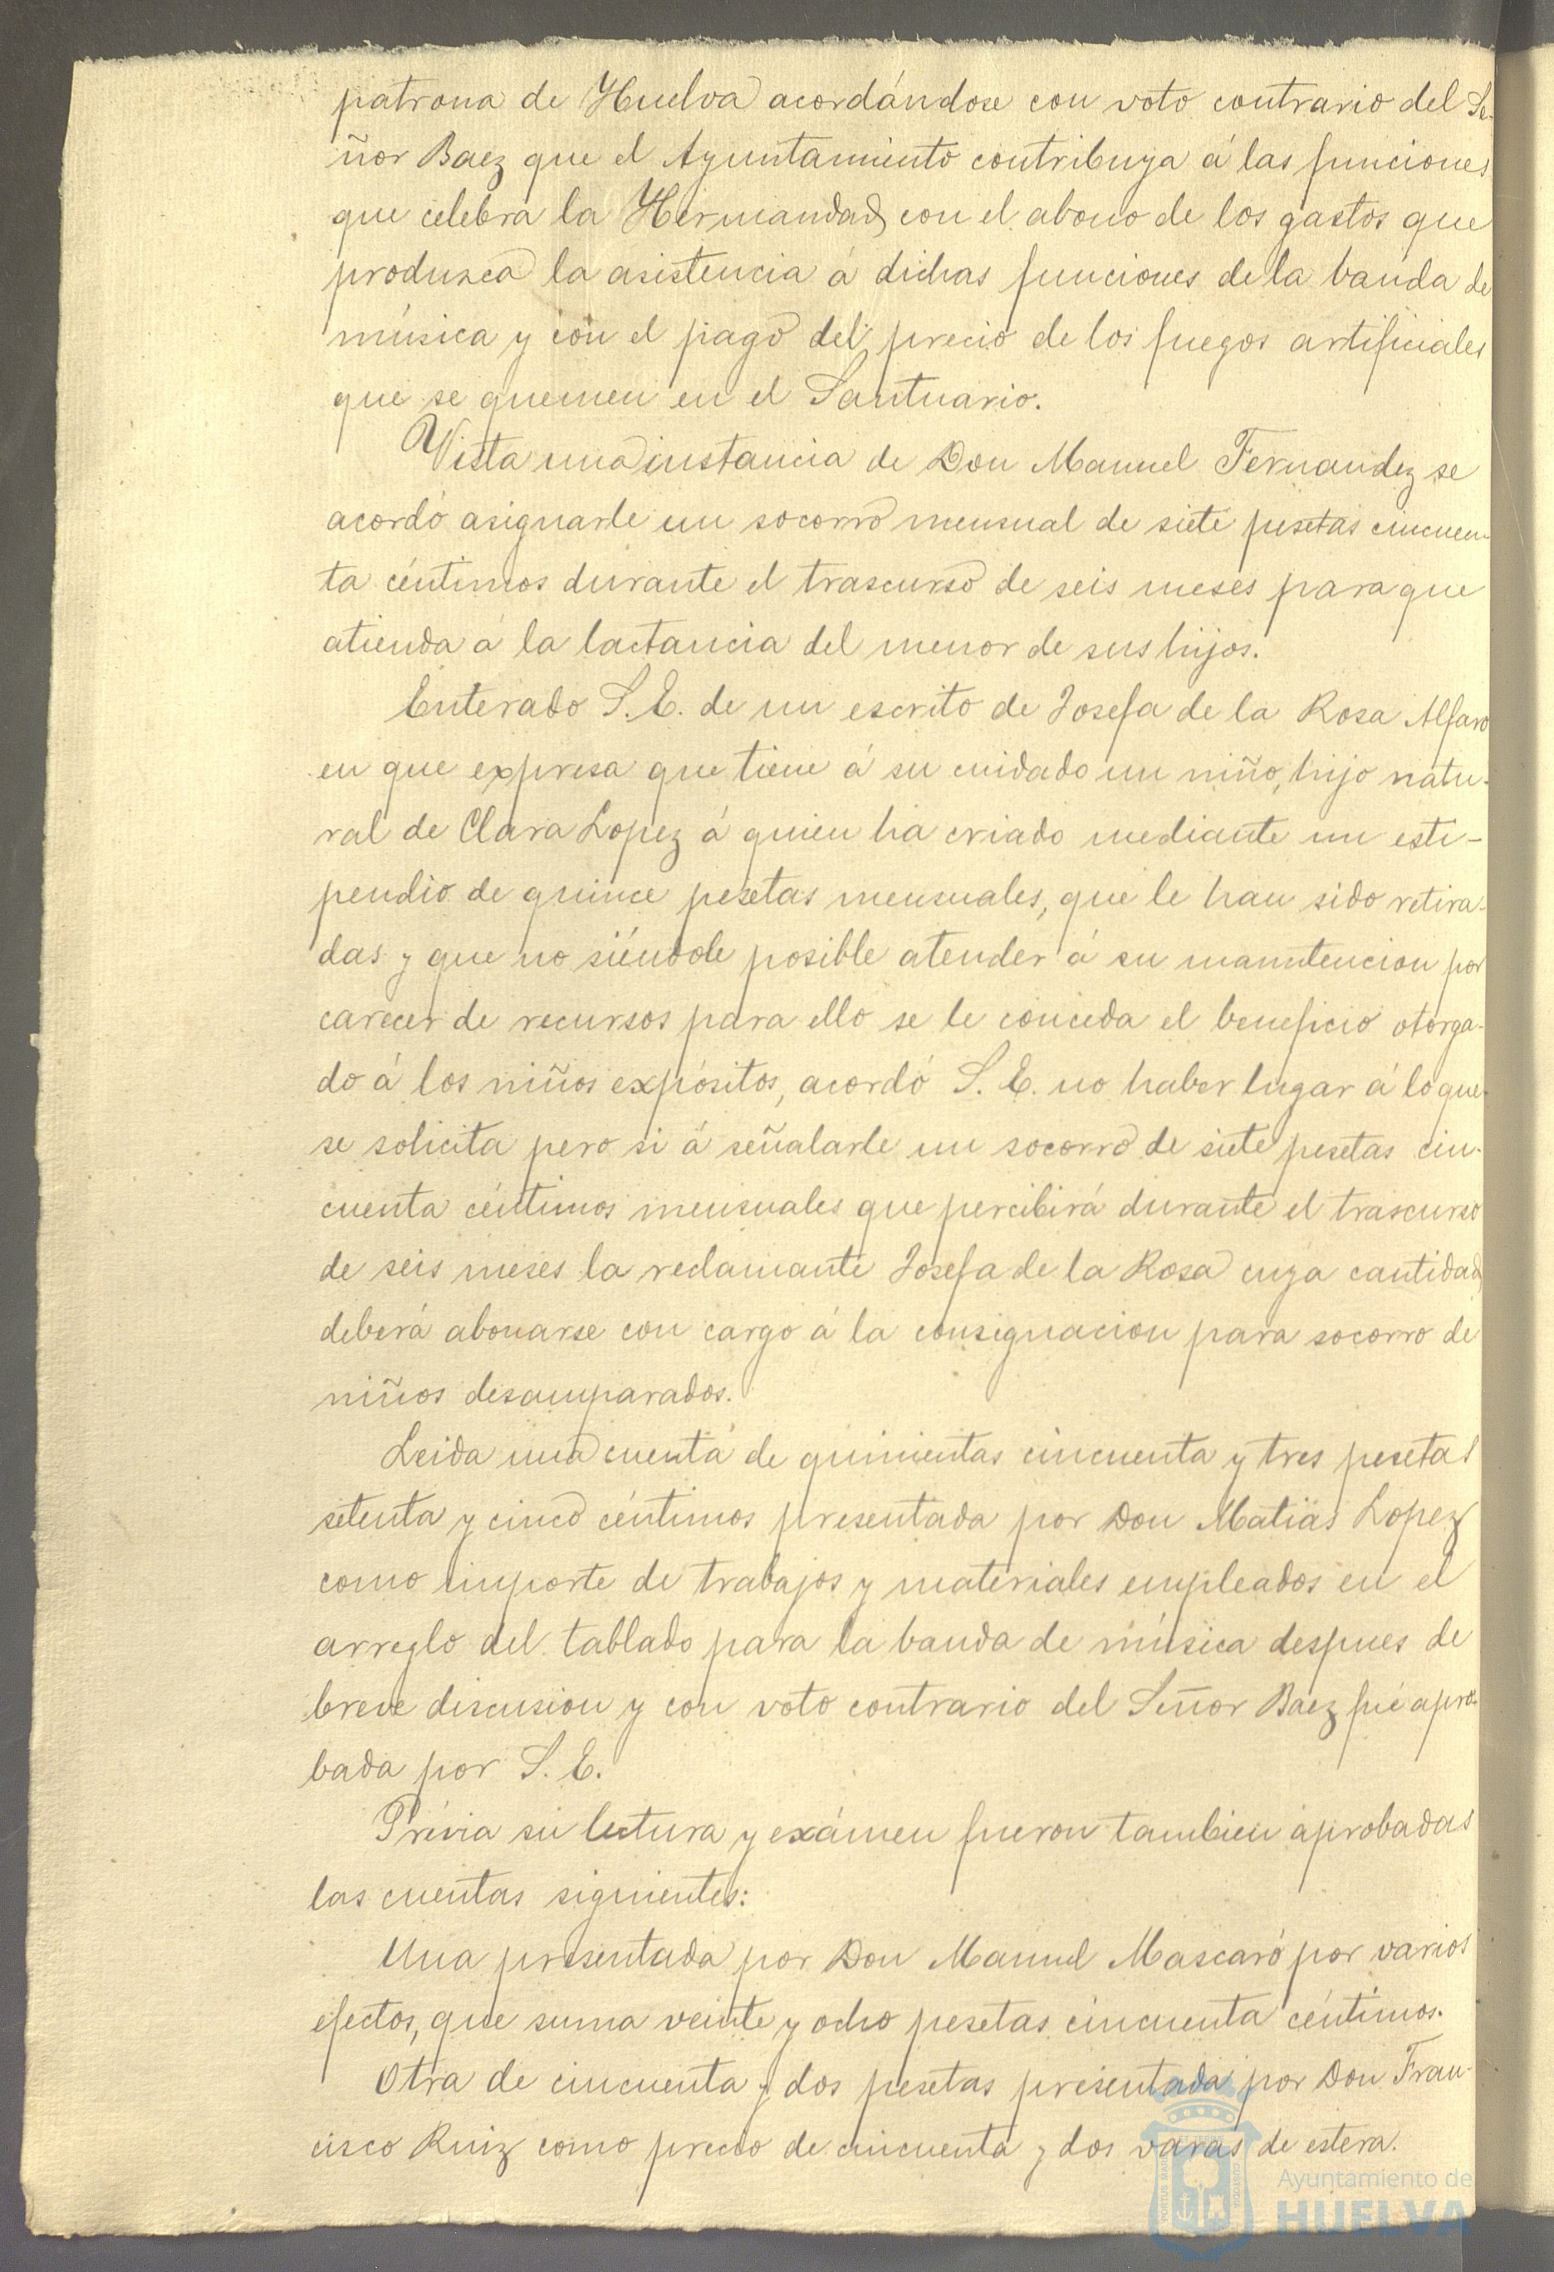 patrona de Huelva acordándose con voto contrario del Se-
ñor Baez que el Ayuntamiento contribuya á las funciones
que celebra la Hermandad, con el abono de los gastos que
produzca la asistencia á dichas funciones de la banda de
música y con el pago del precio de los fuegos artificiales
que se quemen en el Santuario.
Vista una instancia de Don Manuel Fernandez se
acordó asignarle un socorro mensual de siete pesetas cincuen-
ta céntimos durante el trascurso de seis meses para que
atienda á la lactancia del menor de sus hijos.
Enterado S. E. de un escrito de Josefa de la Rosa Alfaro
en que expresa que tiene á su cuidado un niño, hijo natu-
ral de Clara Lopez á quien ha criado mediante un esti-
pendio de quince pesetas mensuales, que le han sido retira-
das y que no siéndole posible atender á su manutencion por
carecer de recursos para ello se le conceda el beneficio otorga-
do á los niños expósitos, acordó S. E. no haber lugar á lo que
se solicita pero si á señalarle un socorro de siete pesetas cin-
cuenta céntimos mensuales que percibirá durante el trascurso
de seis meses la reclamante Josefa de la Rosa cuya cantidad
deberá abonarse con cargo á la consignacion para socorro de
niños desamparados.
Leida una cuenta de quinientas cincuenta y tres pesetas
setenta y cinco céntimos presentada por Don Matias Lopez
como importe de trabajos y materiales empleados en el
arreglo del tablado para la banda de música despues de
breve discusion y con voto contrario del Señor Baez fué apro-
bada por S. E.
Prévia su lectura y exámen fueron tambien aprobadas
las cuentas siguientes:
Una presentada por Don Manuel Mascaró por varios
efectos, que suma veinte y ocho pesetas cincuenta céntimos.
Otra de cincuenta y dos pesetas presentada por Don Fran-
cisco Ruiz como precio de cincuenta y dos varas de estera.
Ayuntamiento de
HUELVA